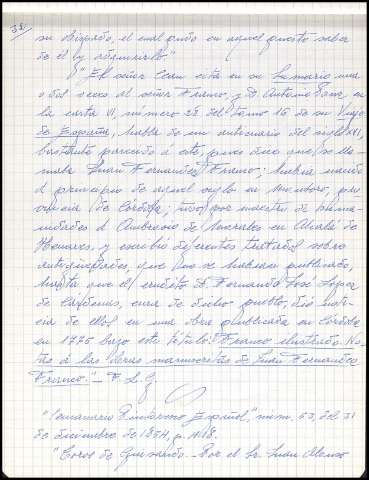 32.
su Obispado, el cual pudo en aquel puesto saber
de él y adquirirlo"
"El señor Cean cita en su Sumario una
o dos veces al señor Franco, y D. Antonio Ponz, en
la carta VI, número 23 del tomo 16 de su Viaje
de España, habla de un anticuario del siglo XVI,
bastante parecido á éste, pues dice que se lla-
maba Juan Fernandez Franco; había nacido
á principio de aquel siglo en Montoro, pro-
vincia de Córdoba; tuvo por maestro de huma-
nidades á Ambrosio de Morales en Alcalá de
Henares, y escribió diferentes tratados sobre
antigüedades, que no se habían publicado,
hasta que el erudito D. Fernando José Lopez
de Cárdenas, cura de dicho pueblo, dió noti-
cia de ellos en una obra publicada en Córdoba
en 1775 bajo este título: Franco ilustrado. No-
tas á las obras manuscritas de Juan Fernandez
Franco."- F. L. G.
"Semanario Pintoresco Español", núm. 53, del 31
de diciembre de 1854, p. 418.
"Coros de Guisando. - Por el Sr. Juan Alonso